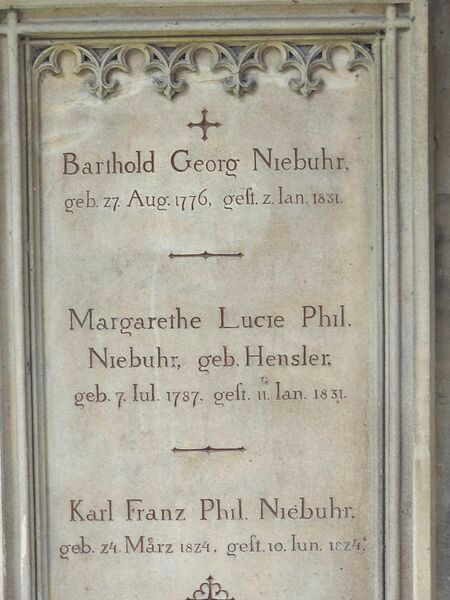 Barthold Georg Niebuhr,
geb. 27. Aug. 1776, gest. 2. Ian. 1831.
Margarethe Lucie Phil.
Niebuhr, geb. Hensler,
geb. 7. Iul. 1787. gest. 11. Ian. 1831.
Karl Franz Phil. Niebuhr,
geb. 24. März 1824. gest. 10. Iun. 1824.